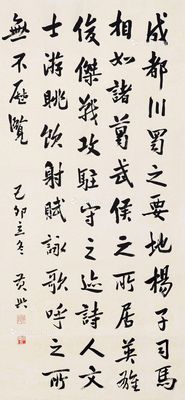 成都川蜀之要地楊子司馬
相如諸葛武侯之所居英雄
俊傑戰攻駐守之迹詩人文
士游眺飲射賦詠歌呼之所
無不歷覽
己卯立冬